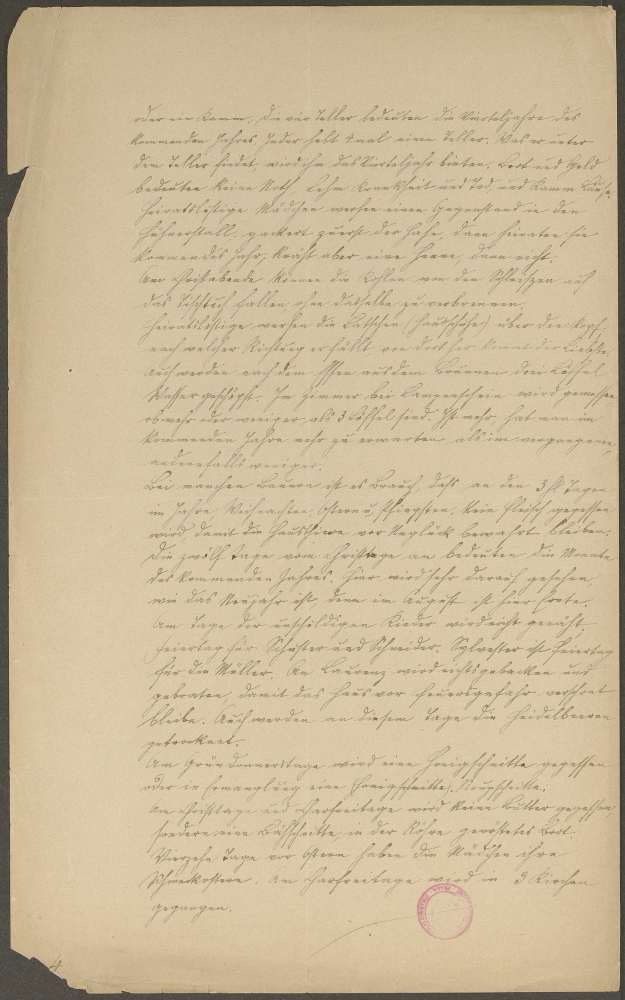 oder ein Kamm. Die vier Teller bedeuten die Vierteljahre des
kommenden Jahres. Jeder hebt 4 mal einen Teller. Was er unter
dem Teller findet, wird ihm das Vierteljahr bieten. Brot und Geld
bedeuten keine Noth, Lehm Krankheit und Tod, und Kamm Läuse.
Heiratslustige Mädchen werfen einen Gegenstand in den
Hühnerstall, gackert zuerst der Hahn, dann heiraten sie
kommendes Jahr, kräht aber eine Henne, dann nicht.
Am Christabende können die Kohlen von den Schleißen auf
das Tischtuch fallen ohne dasselbe zu verbrennen.
Heiratslustige werfen die Latschen (Hausschuhe) über den Kopf,
nach welcher Richtung er fällt von dort her kommt der Liebste.
Auch werden nach dem Essen aus dem Brunnen drei Löffel
Wasser geschöpft. Im Zimmer bei Lampenschein wird gemessen
ob mehr oder weniger als 3 Löffel sind. Ist mehr, hat man im
kommenden Jahre mehr zu erwarten als im vergangenen,
andernfalls weniger.
Bei manchen Bauern ist es Brauch, daß an den 3 hl. Tagen
im Jahre, Weihnachten, Ostern u. Pfingsten, kein Fleisch gegessen
wird, damit die Hausthiere vor Unglück bewahrt bleiben.
Die zwölf Tage vom Christtage an bedeuten die Monate
des kommenden Jahres. Hier wird sehr darauf gesehen,
wie das Neujahr ist, denn im August ist hier Ernte.
Am Tage der unschuldigen Kinder wird nicht genäht,
Feiertag für Schuster und Schneider. Sylvester ist Feiertag
für die Müller. An Laurenz wird nichts gebacken und
gebraten, damit das Haus vor Feuersgefahr verschont
bleibe. Auch werden an diesem Tage die Heidelbeeren
getrocknet.
Am Gründonnerstage wird eine Honigschnitte gegessen
oder in Ermanglung einer (Honigschnitte)
Am Christtage und Charfreitage wird keine Butter gegessen
sondern eine Bähschnitte, in der Röhre geröstetes Brot.
Vierzehn Tage vor Ostern haben die Mädchen ihre
Am Charfreitage wird in 3 Kirchen
gegangen.
4